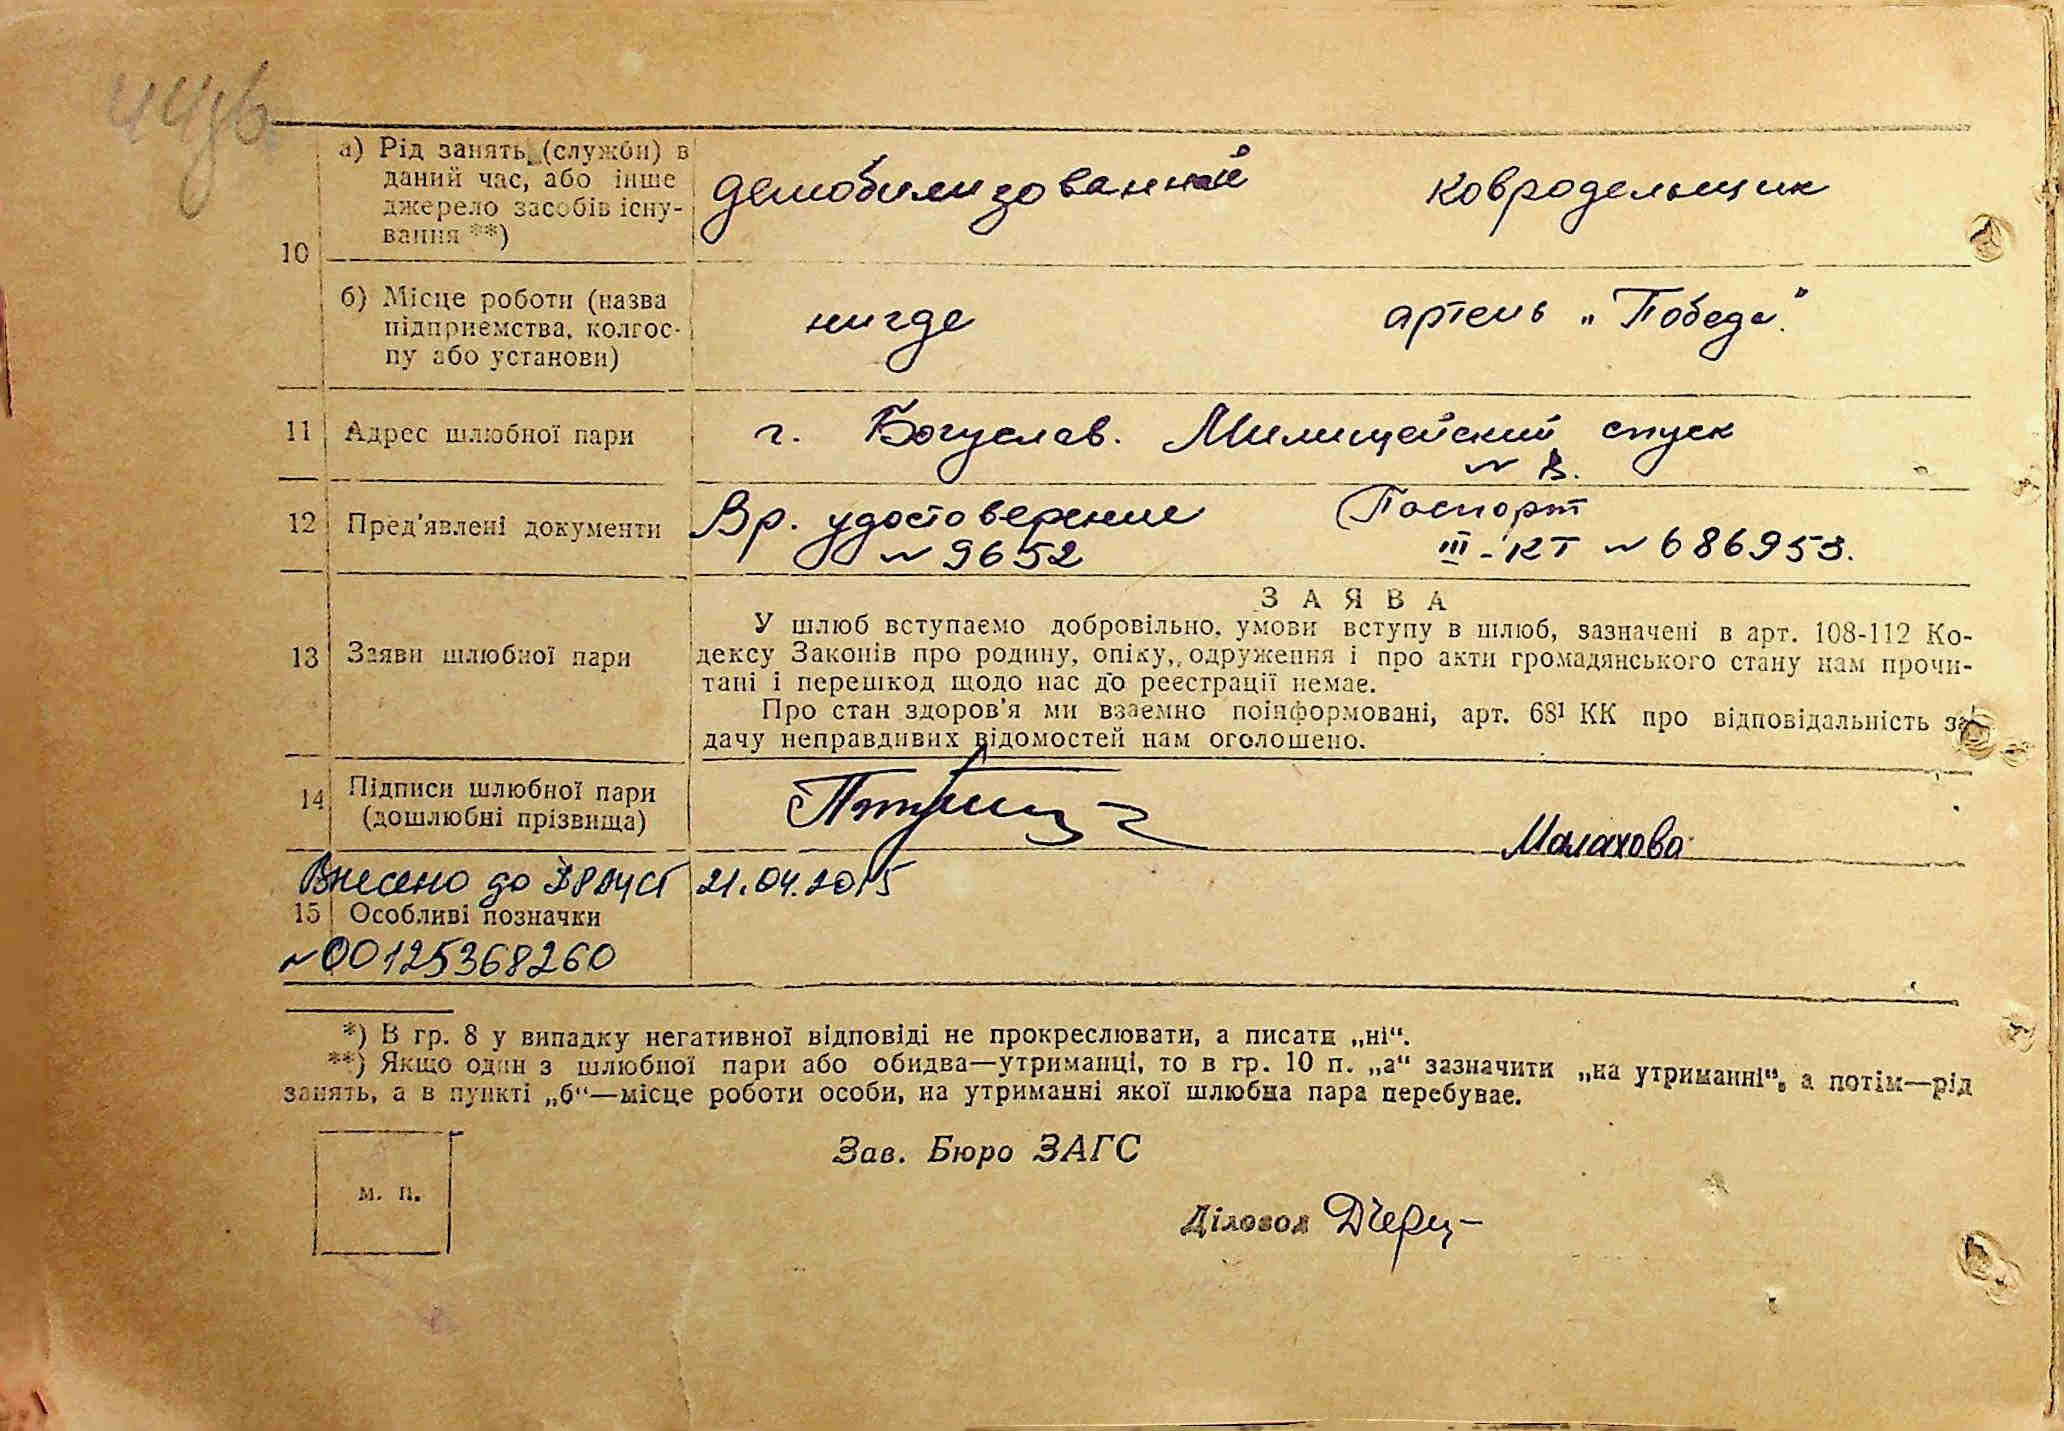 а) Рід занять (служби) в
даний час, або інше
джерело засобів існу-
вання **)
демобилизованный
ковродельщик
10
б) Місце роботи (назва
підприємства, колгос-
пу або установи)
нигде
артель „Победа"
11 Адрес шлюбної пари
г. Богуслав. Милицейский спуск
№ 8.
12 Пред'явлені документи
Вр. удостоверение
№ 9652
Паспорт
III-КТ № 686953.
13 Заяви шлюбної пари
ЗАЯВА
У шлюб вступаємо добровільно, умови вступу в шлюб, зазначені в арт. 108-112 Ко-
дексу Законів про родину, опіку, одруження і про акти громадянського стану нам прочи-
тані і перешкод щодо нас до реєстрації немає.
Про стан здоров'я ми взаємно поінформовані, арт. 68¹ КК про відповідальність за
дачу неправдивих відомостей нам оголошено.
14 Підписи шлюбної пари
(дошлюбні прізвища)
Малахова
Внесено до ДРАЦСГ 21.04.2015
15 Особливі позначки
№00125368260
*) В гр. 8 у випадку негативної відповіді не прокреслювати, а писати „ні“.
**) Якщо один з шлюбної пари або обидва—утриманці, то в гр. 10 п. „а“ зазначити „на утриманні“, а потім—рід
занять, а в пункті „б“—місце роботи особи, на утриманні якої шлюбна пара перебуває.
Зав. Бюро ЗАГС
м. п.
Діловод